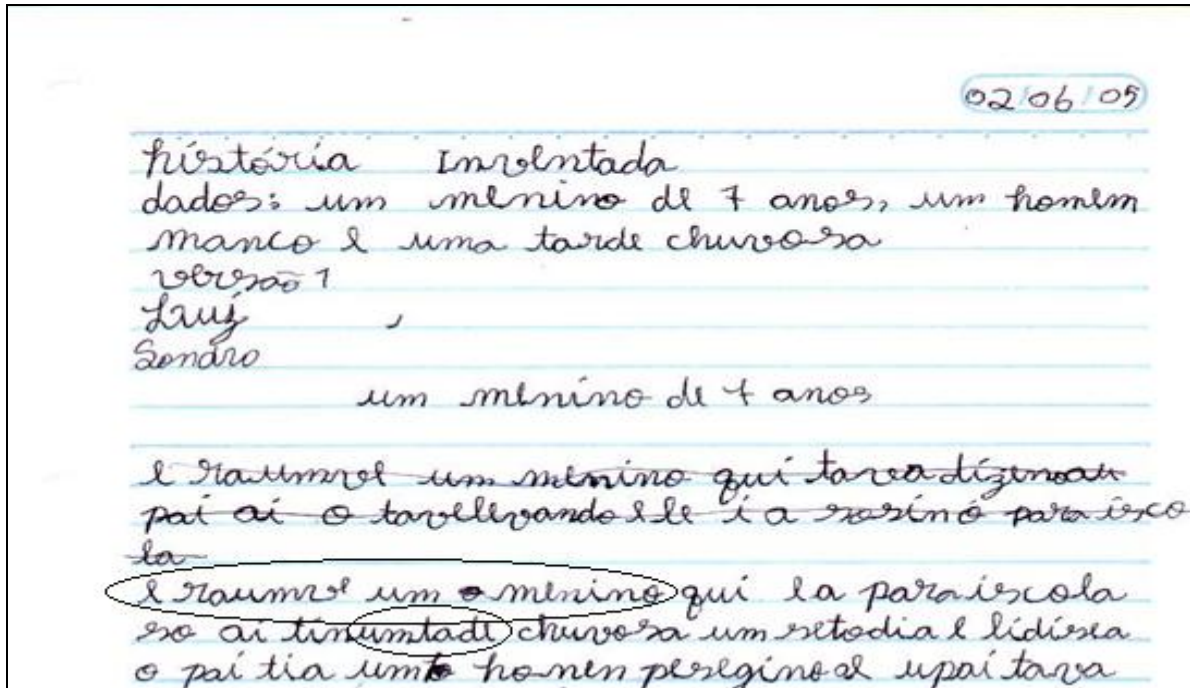 02/06/05
história Inventada
dados: um menino de 7 anos, um homem
manco e uma tarde chuvosa
versão 1
Luiz
Sandro
um menino de 7 anos
e raumve um menino qui tava dizenoau
pai ai o tavellevandoelle i a sosino para isco
la
e raumve um o menino qui ia para iscola
so ai tinumtade chuvosa um setodia e lidisea
o pai tia um homen peregino upai tava